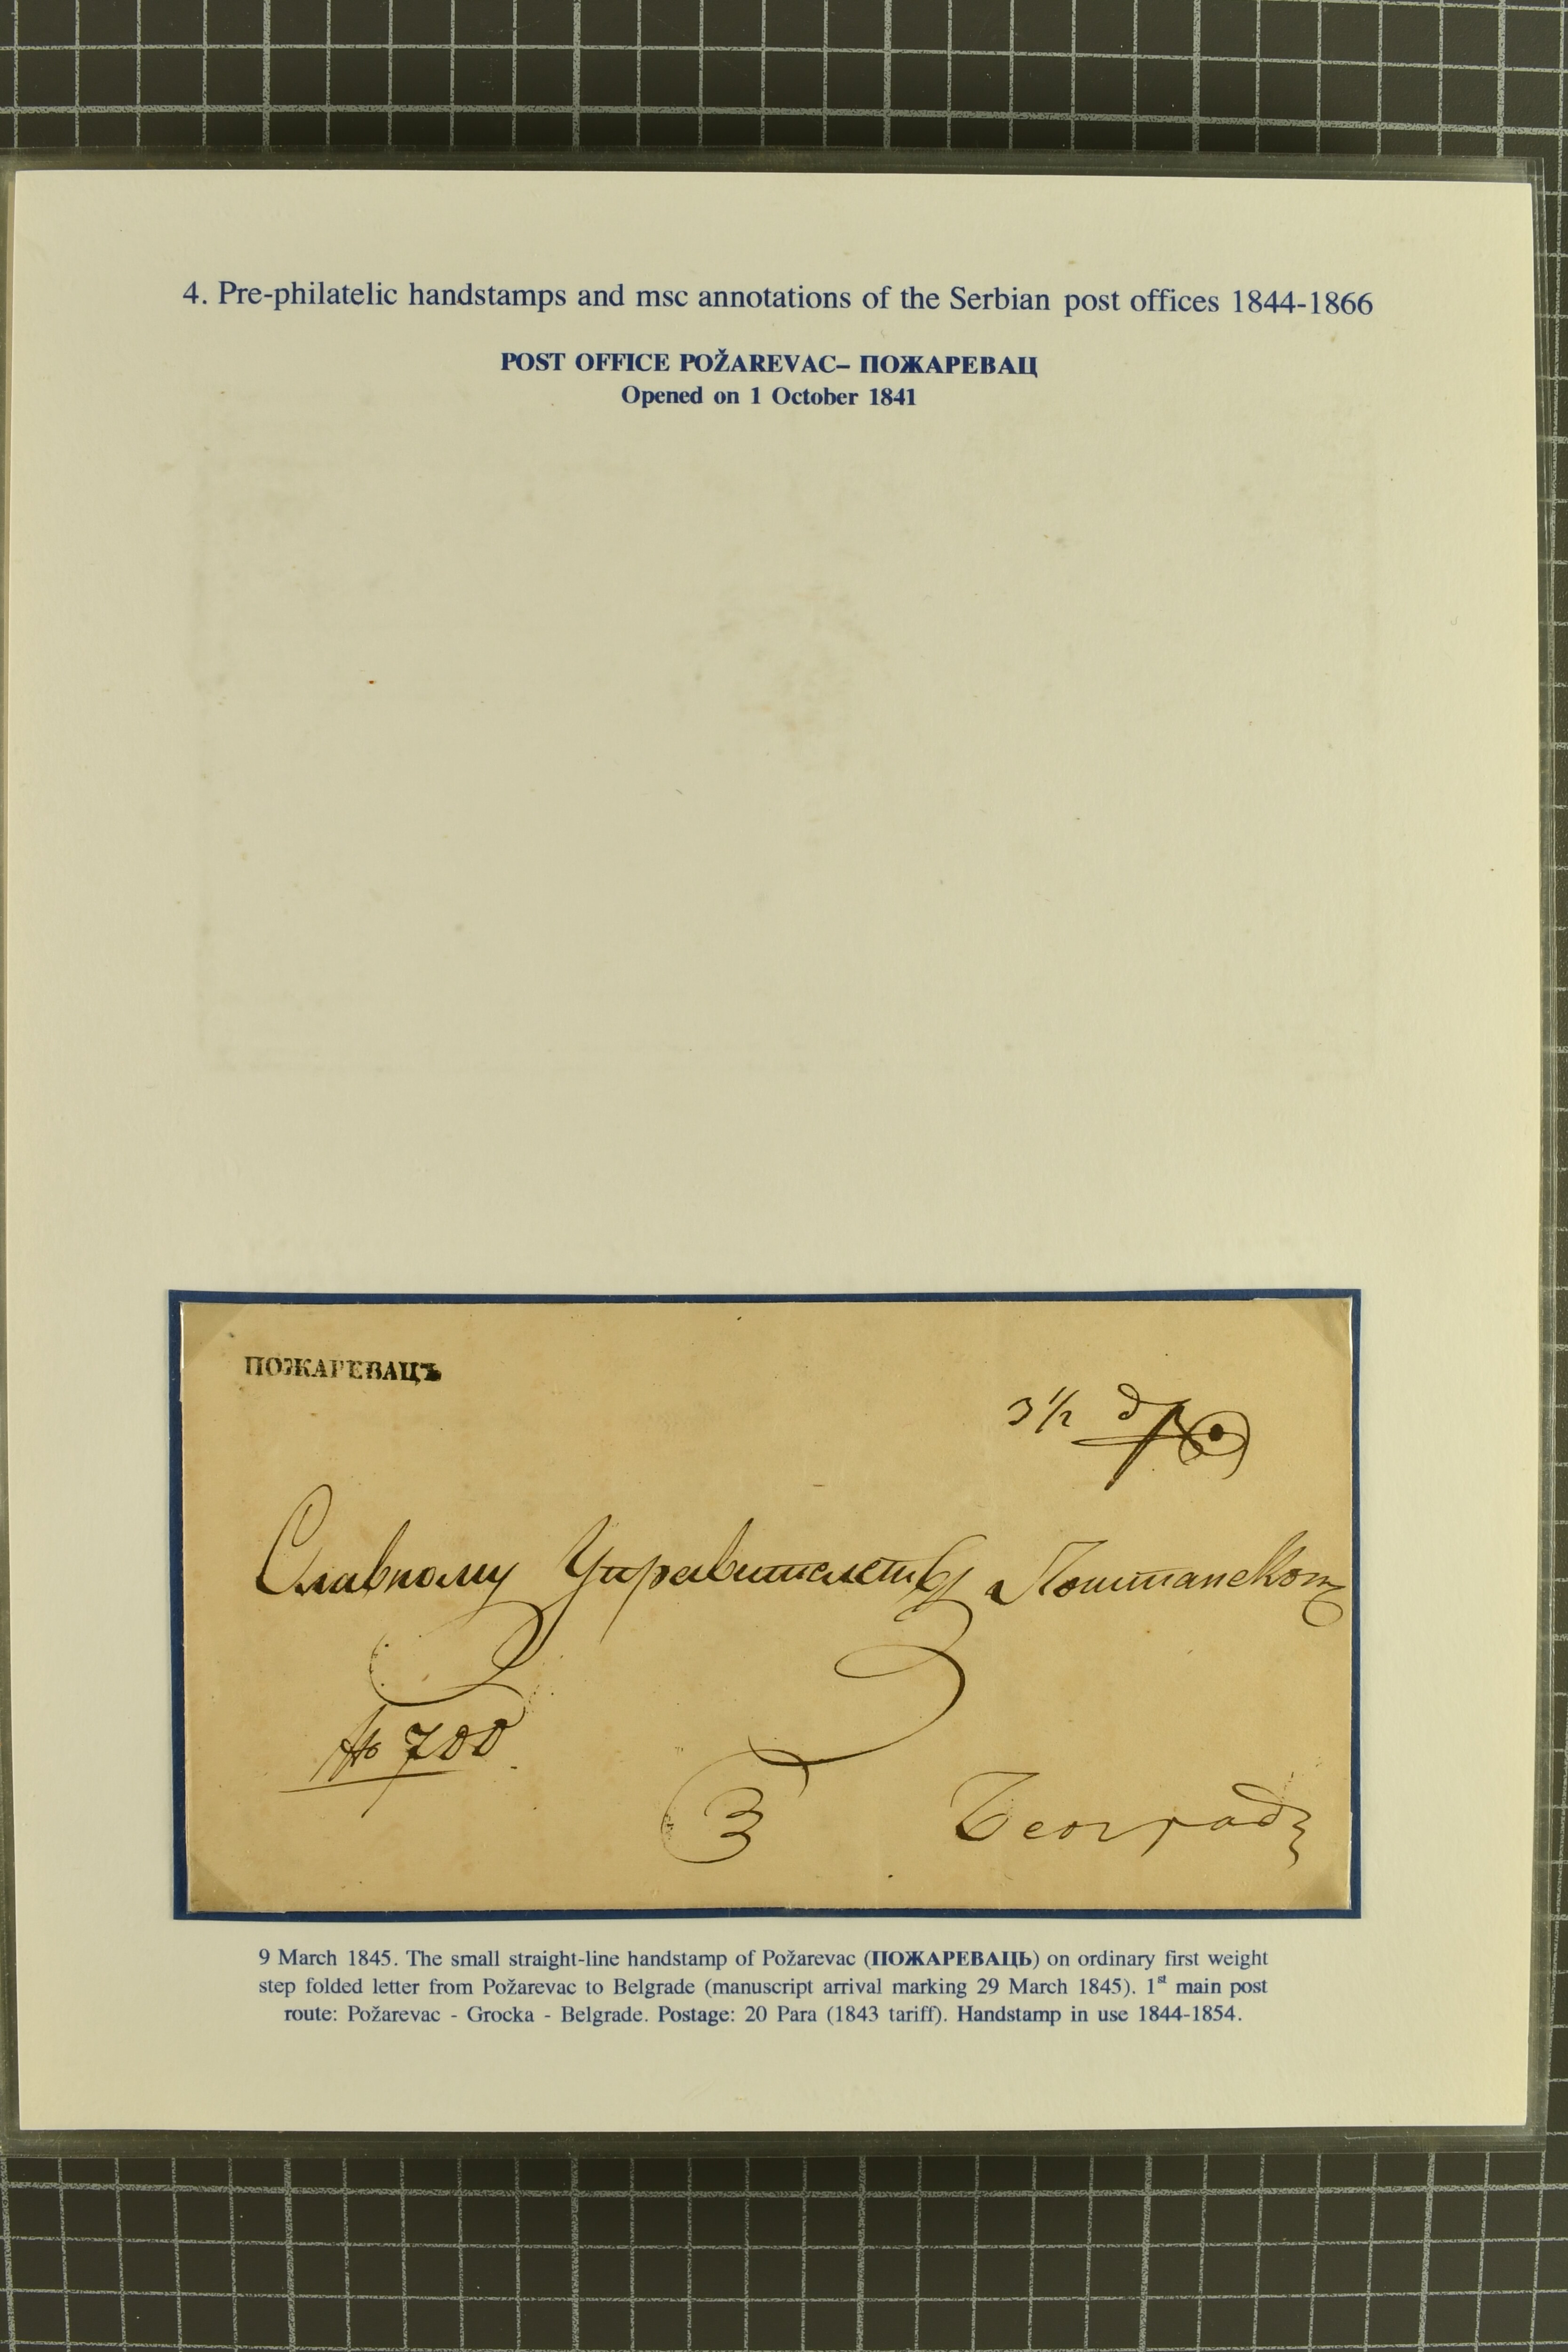 4. Pre-philatelic handstamps and msc annotations of the Serbian post offices 1844-1866
POST OFFICE POŽAREVAC– ПОЖАРЕВАЦ
Opened on 1 October 1841
ПОЖАРЕВАЦЪ
3 1/2
Славному Управителству Поштанском
№ 700
У Београдъ
9 March 1845. The small straight-line handstamp of Požarevac (ПОЖАРЕВАЦЬ) on ordinary first weight
step folded letter from Požarevac to Belgrade (manuscript arrival marking 29 March 1845). 1st main post
route: Požarevac - Grocka - Belgrade. Postage: 20 Para (1843 tariff). Handstamp in use 1844-1854.